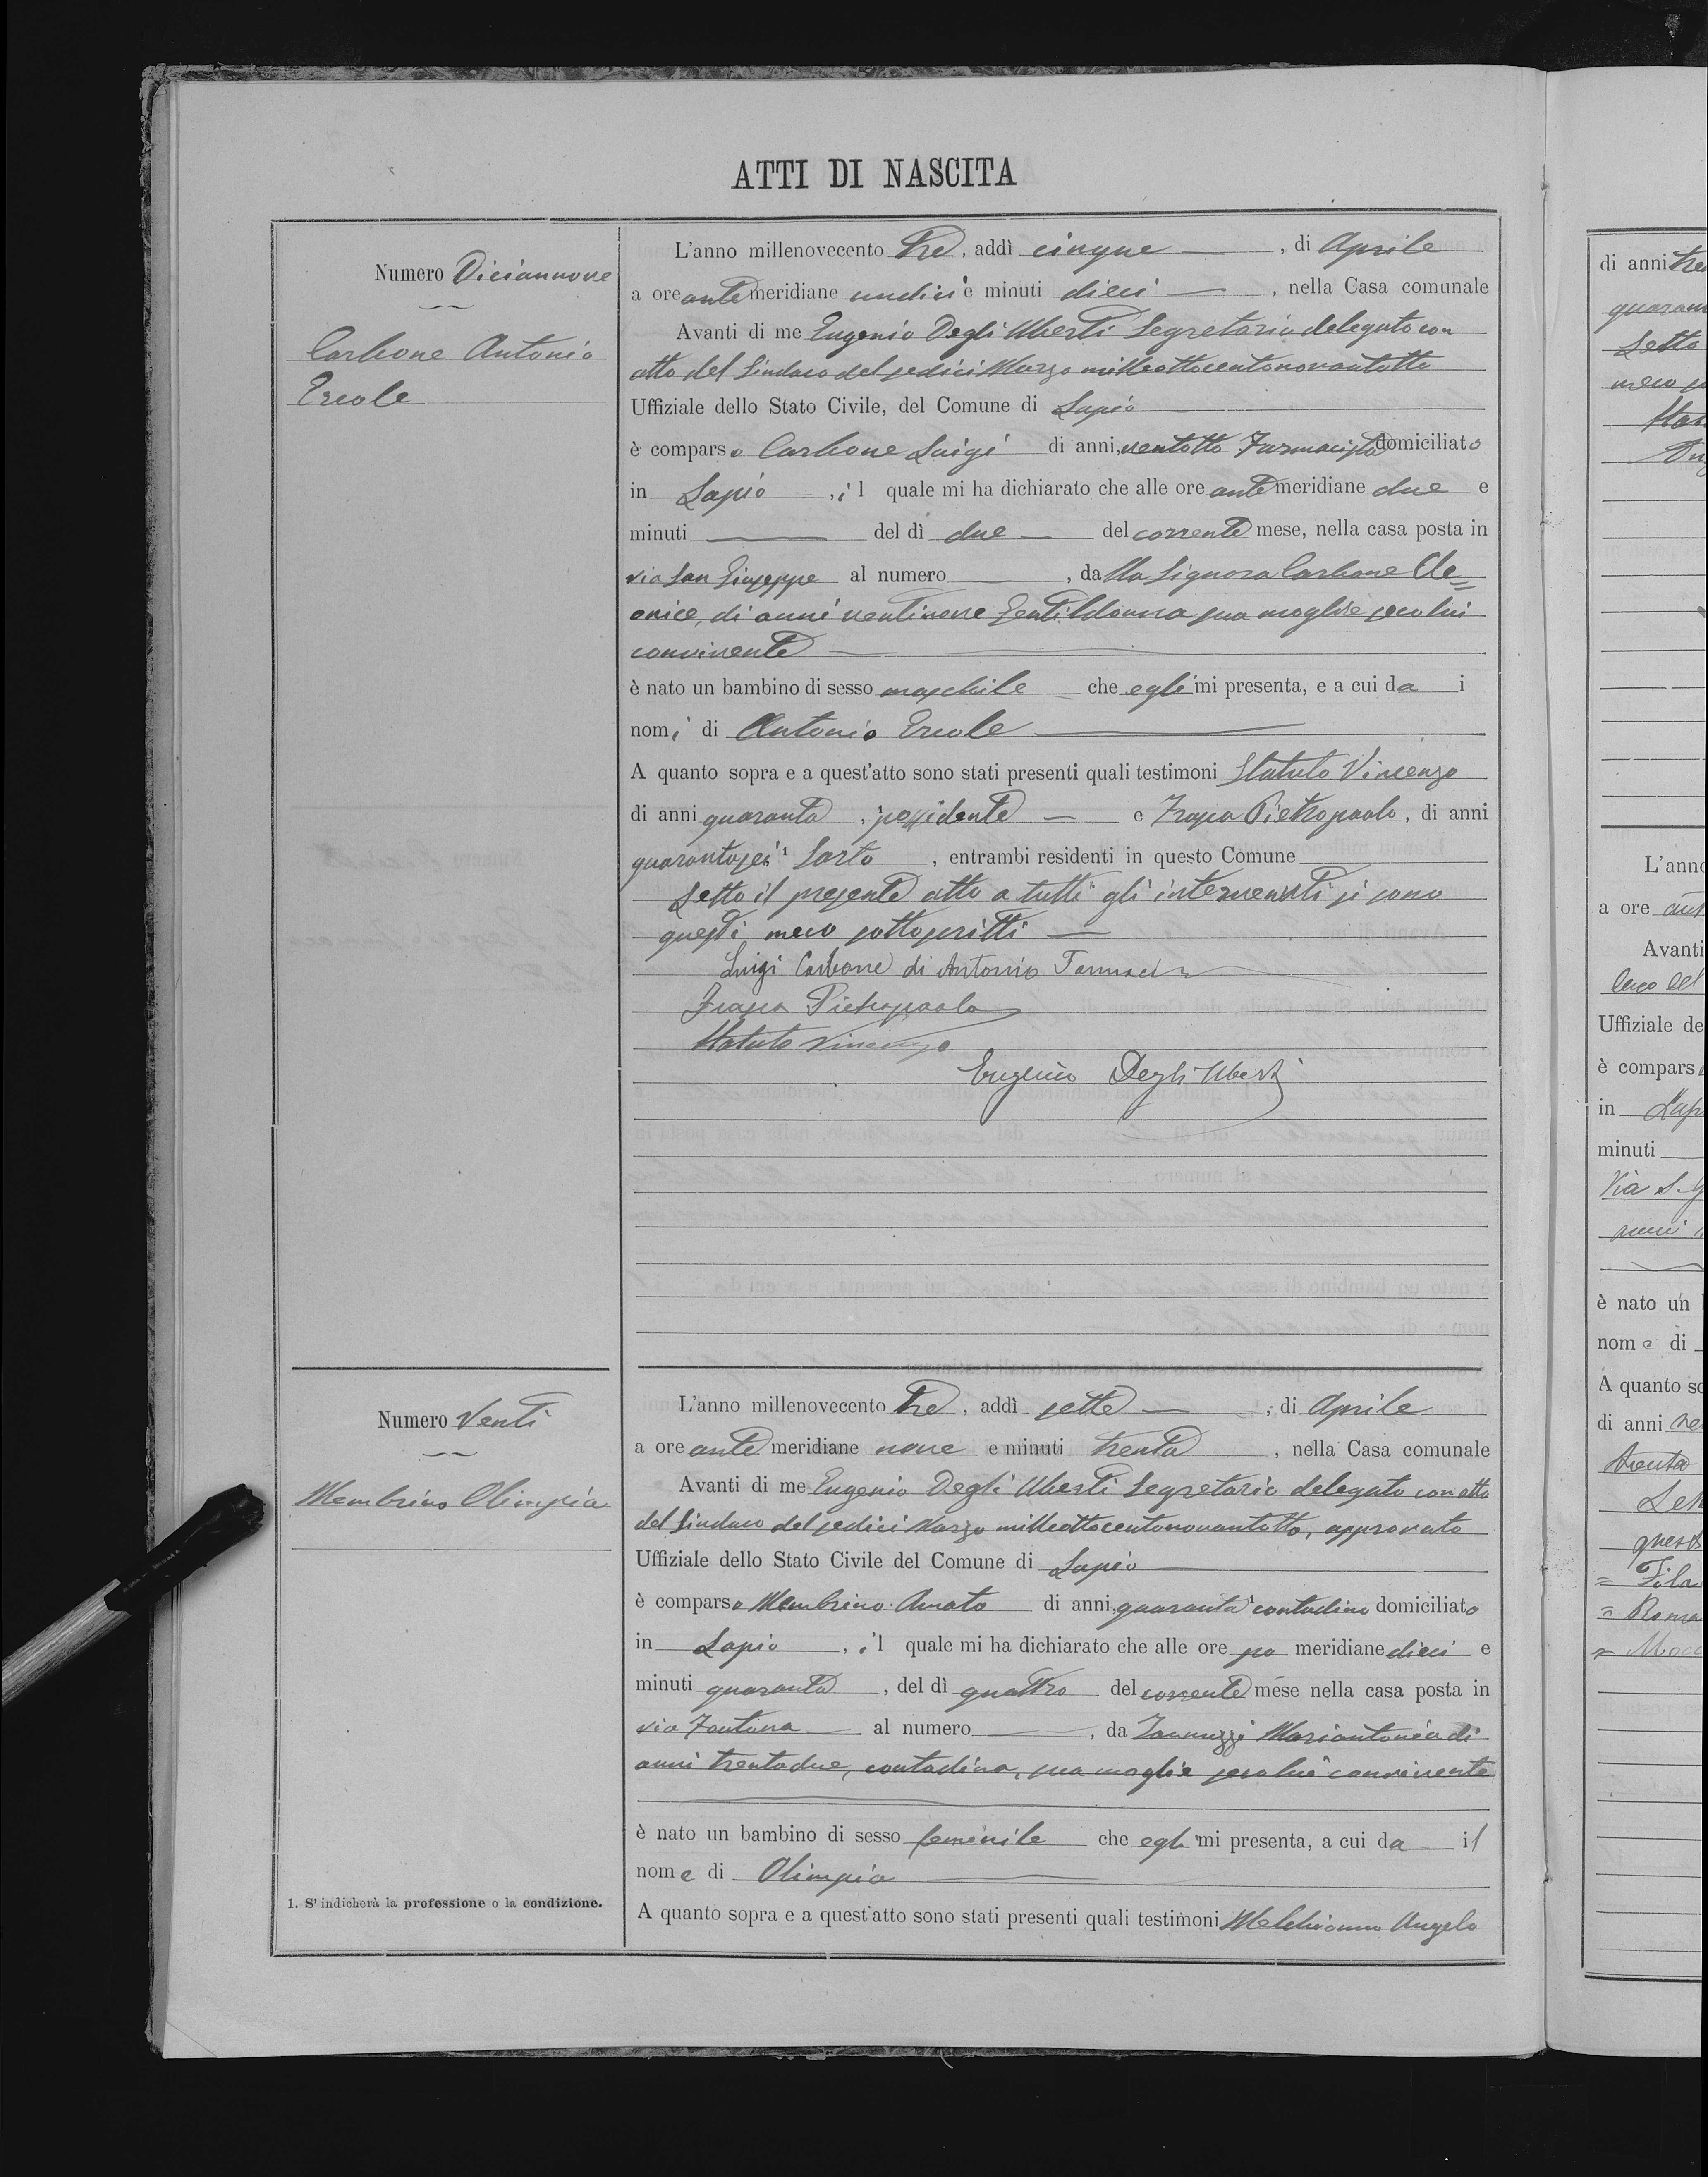 ATTI DI NASCITA
Numero Diciannove
Carbone Antonio
Ercole
L'anno millenovecento tre, addì cinque, di Aprile
a ore antemeridiane undici e minuti dieci, nella Casa comunale
Avanti di me Eugenio Degli Uberti Segretario delegato con
atto del Sindaco del sedici Marzo milleottocentonovantotto
Uffiziale dello Stato Civile, del Comune di Lapio
è comparso Carbone Luigi di anni, ventotto Farmacista domiciliato
in Lapio, il quale mi ha dichiarato che alle ore antemeridiane due e
minuti del dì due del corrente mese, nella casa posta in
via San Giuseppe al numero, dalla Signora Carbone Cle=
onice, di anni ventinove Gentildonna sua moglie seco lui
convivente
è nato un bambino di sesso maschile che egli mi presenta, e a cui da i
nomi di Antonio Ercole
A quanto sopra e a quest'atto sono stati presenti quali testimoni Statuto Vincenzo
di anni quaranta, possidente e Frasca Pietropaolo, di anni
quarantasei Sarto, entrambi residenti in questo Comune
Letto il presente atto a tutti gli intervenuti si sono
questi meco sottoscritti
Luigi Carbone di Antonio
Pietropaolo
Statuto Vincenzo
Eugenio Degli Uberti
Numero Venti
Membrino Olimpia
L'anno millenovecento tre, addì sette, di Aprile
a ore antemeridiane nove e minuti trenta, nella Casa comunale
Avanti di me Eugenio Degli Uberti Segretario delegato con atto
del Sindaco del sedici Marzo milleottocentonovantotto, approvato
Uffiziale dello Stato Civile del Comune di Lapio
è comparso Membrino Amato di anni, quaranta contadino domiciliato
in Lapio, il quale mi ha dichiarato che alle ore po meridiane dieci e
minuti quaranta, del dì quattro del corrente mese nella casa posta in
via Fontana al numero, da Iannuzzi Mariantonia di
anni trentadue, contadina, sua moglie seco lui convivente
è nato un bambino di sesso feminile che egli mi presenta, a cui da il
nome di Olimpia
A quanto sopra e a quest'atto sono stati presenti quali testimoni Melchionno Angelo
1. S'indicherà la professione o la condizione.
di anni
Letto
L'anno
a ore
Avanti
Uffiziale de
è compars
in
minuti
Via S.
anni
è nato un
nome di
A quanto so
di anni
trenta